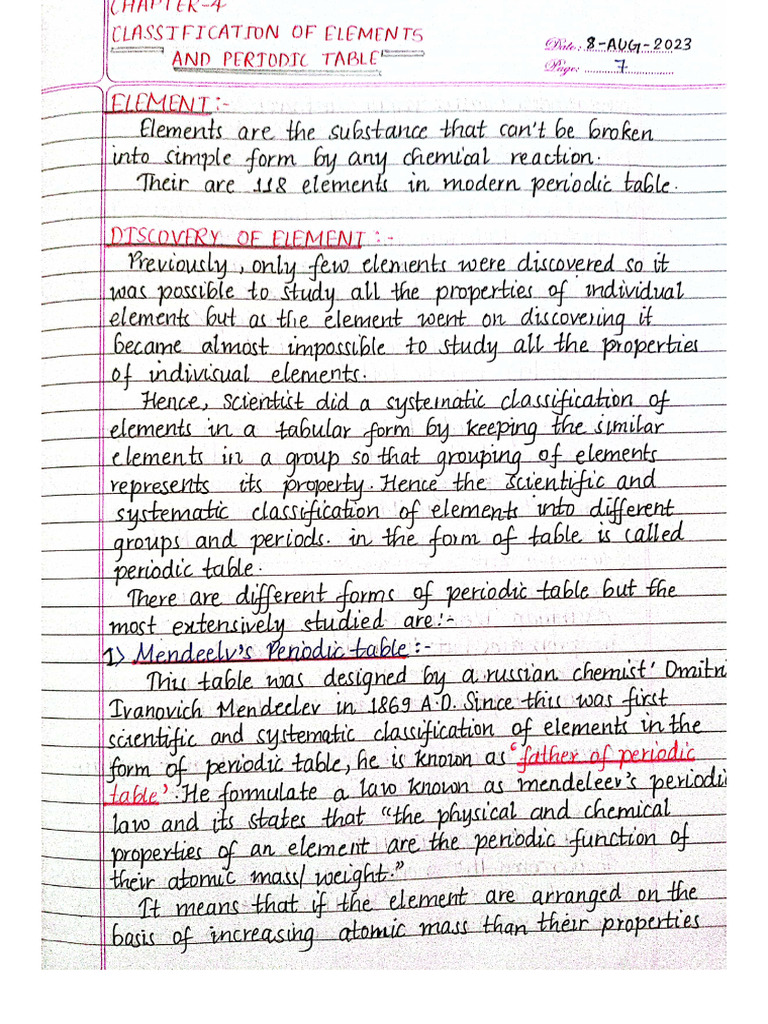 CHAPTER-4
CLASSIFICATION OF ELEMENTS
AND PERIODIC TABLE
Date: 8-AUG-2023
Page: 7
ELEMENT:-
Elements are the substance that can't be broken
into simple form by any chemical reaction.
Their are 118 elements in modern periodic table.
DISCOVERY OF ELEMENT:-
Previously, only few elements were discovered so it
was possible to study all the properties of individual
elements but as the element went on discovering it
became almost impossible to study all the properties
of indivisual elements.
Hence, scientist did a systematic classification of
elements in a tabular form by keeping the similar
elements in a group so that grouping of elements
represents its property. Hence the scientific and
systematic classification of elements into different
groups and periods. in the form of table is called
periodic table.
There are different forms of periodic table but the
most extensively studied are:-
1) Mendeelv's Periodic table:-
This table was designed by a russian chemist' Dmitri
Ivanovich Mendeelev in 1869 A.D. Since this was first
scientific and systematic classification of elements in the
form of periodic table, he is known as 'father of periodic
table'. He formulate a law known as mendeleev's periodi
law and its states that "the physical and chemical
properties of an element are the periodic function of
their atomic mass/weight."
It means that if the element are arranged on the
basis of increasing atomic mass than their properties